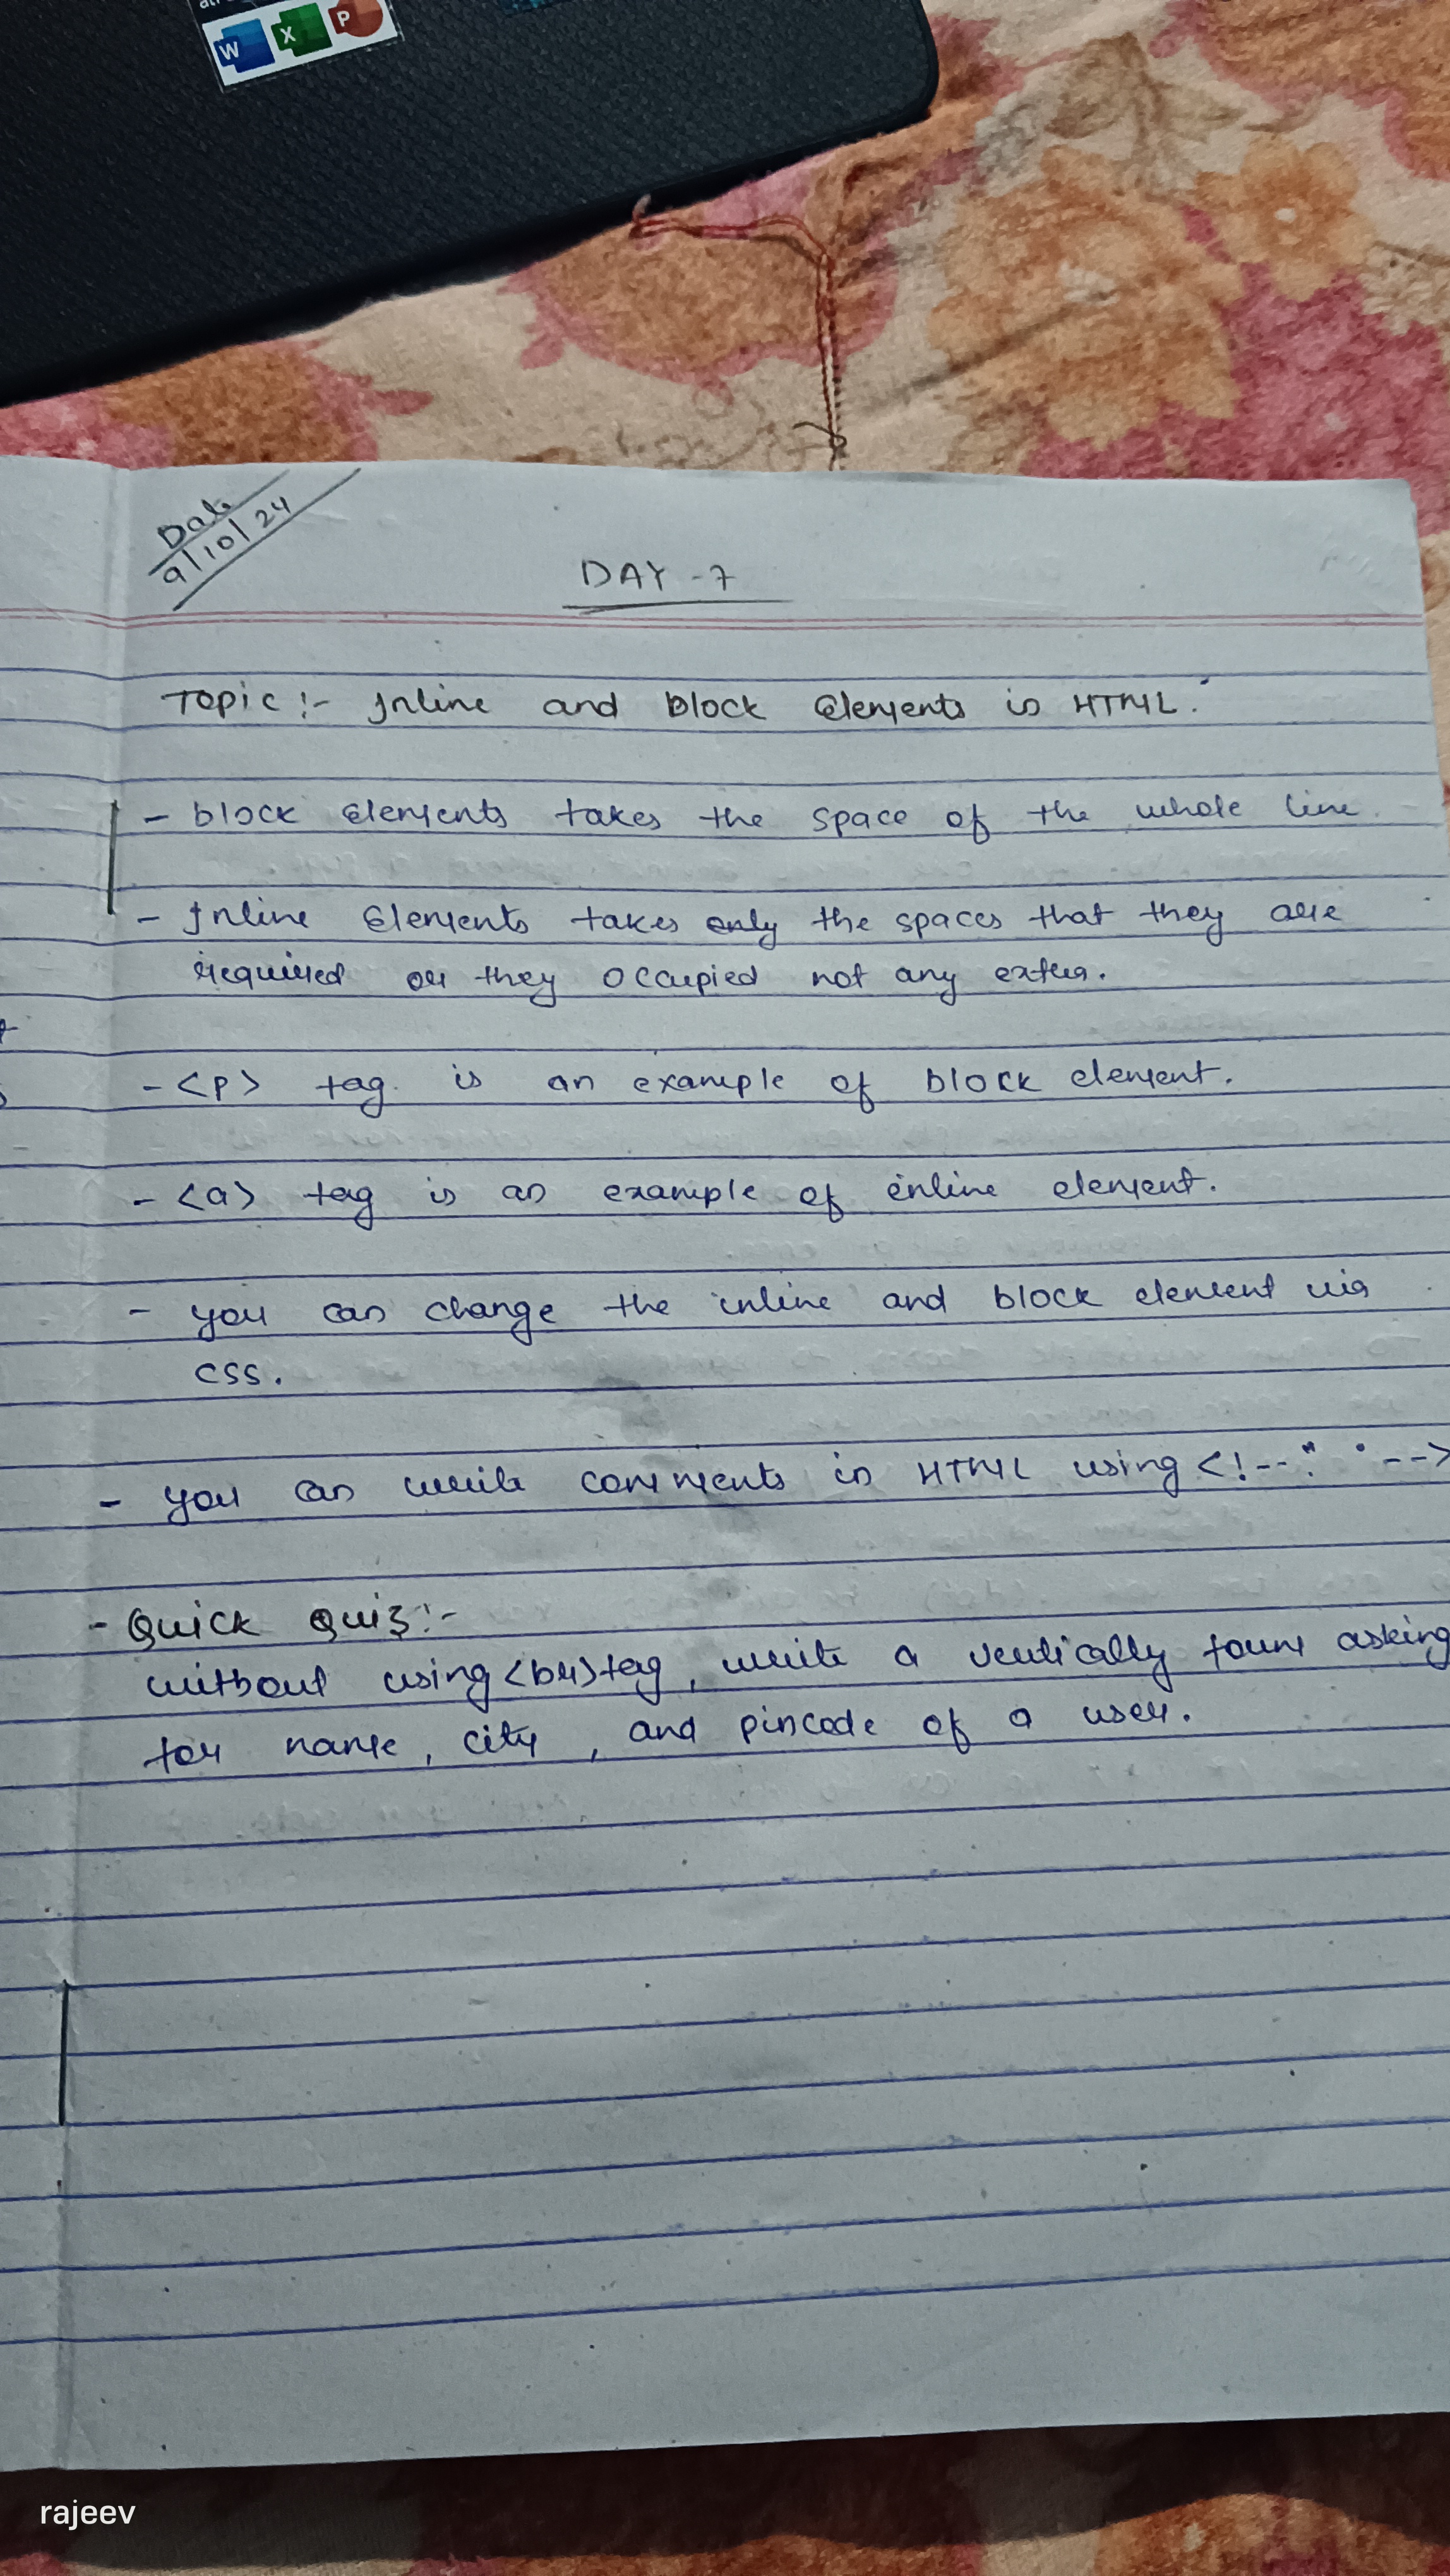 W X P
Date
9/10/24
DAY - 7
Topic :- Inline and block Elements in HTML.
- block Elements takes the space of the whole line.
- Inline Elements takes only the spaces that they are
required or they occupied not any extra.
- <p> tag is an example of block element.
- <a> tag is an example of inline element.
- you can change the inline and block element via
css.
- you can write comments in HTML using <!-- " " -->
- Quick Quiz :-
without using <br> tag, write a vertically form asking
for name, city, and pincode of a user.
rajeev